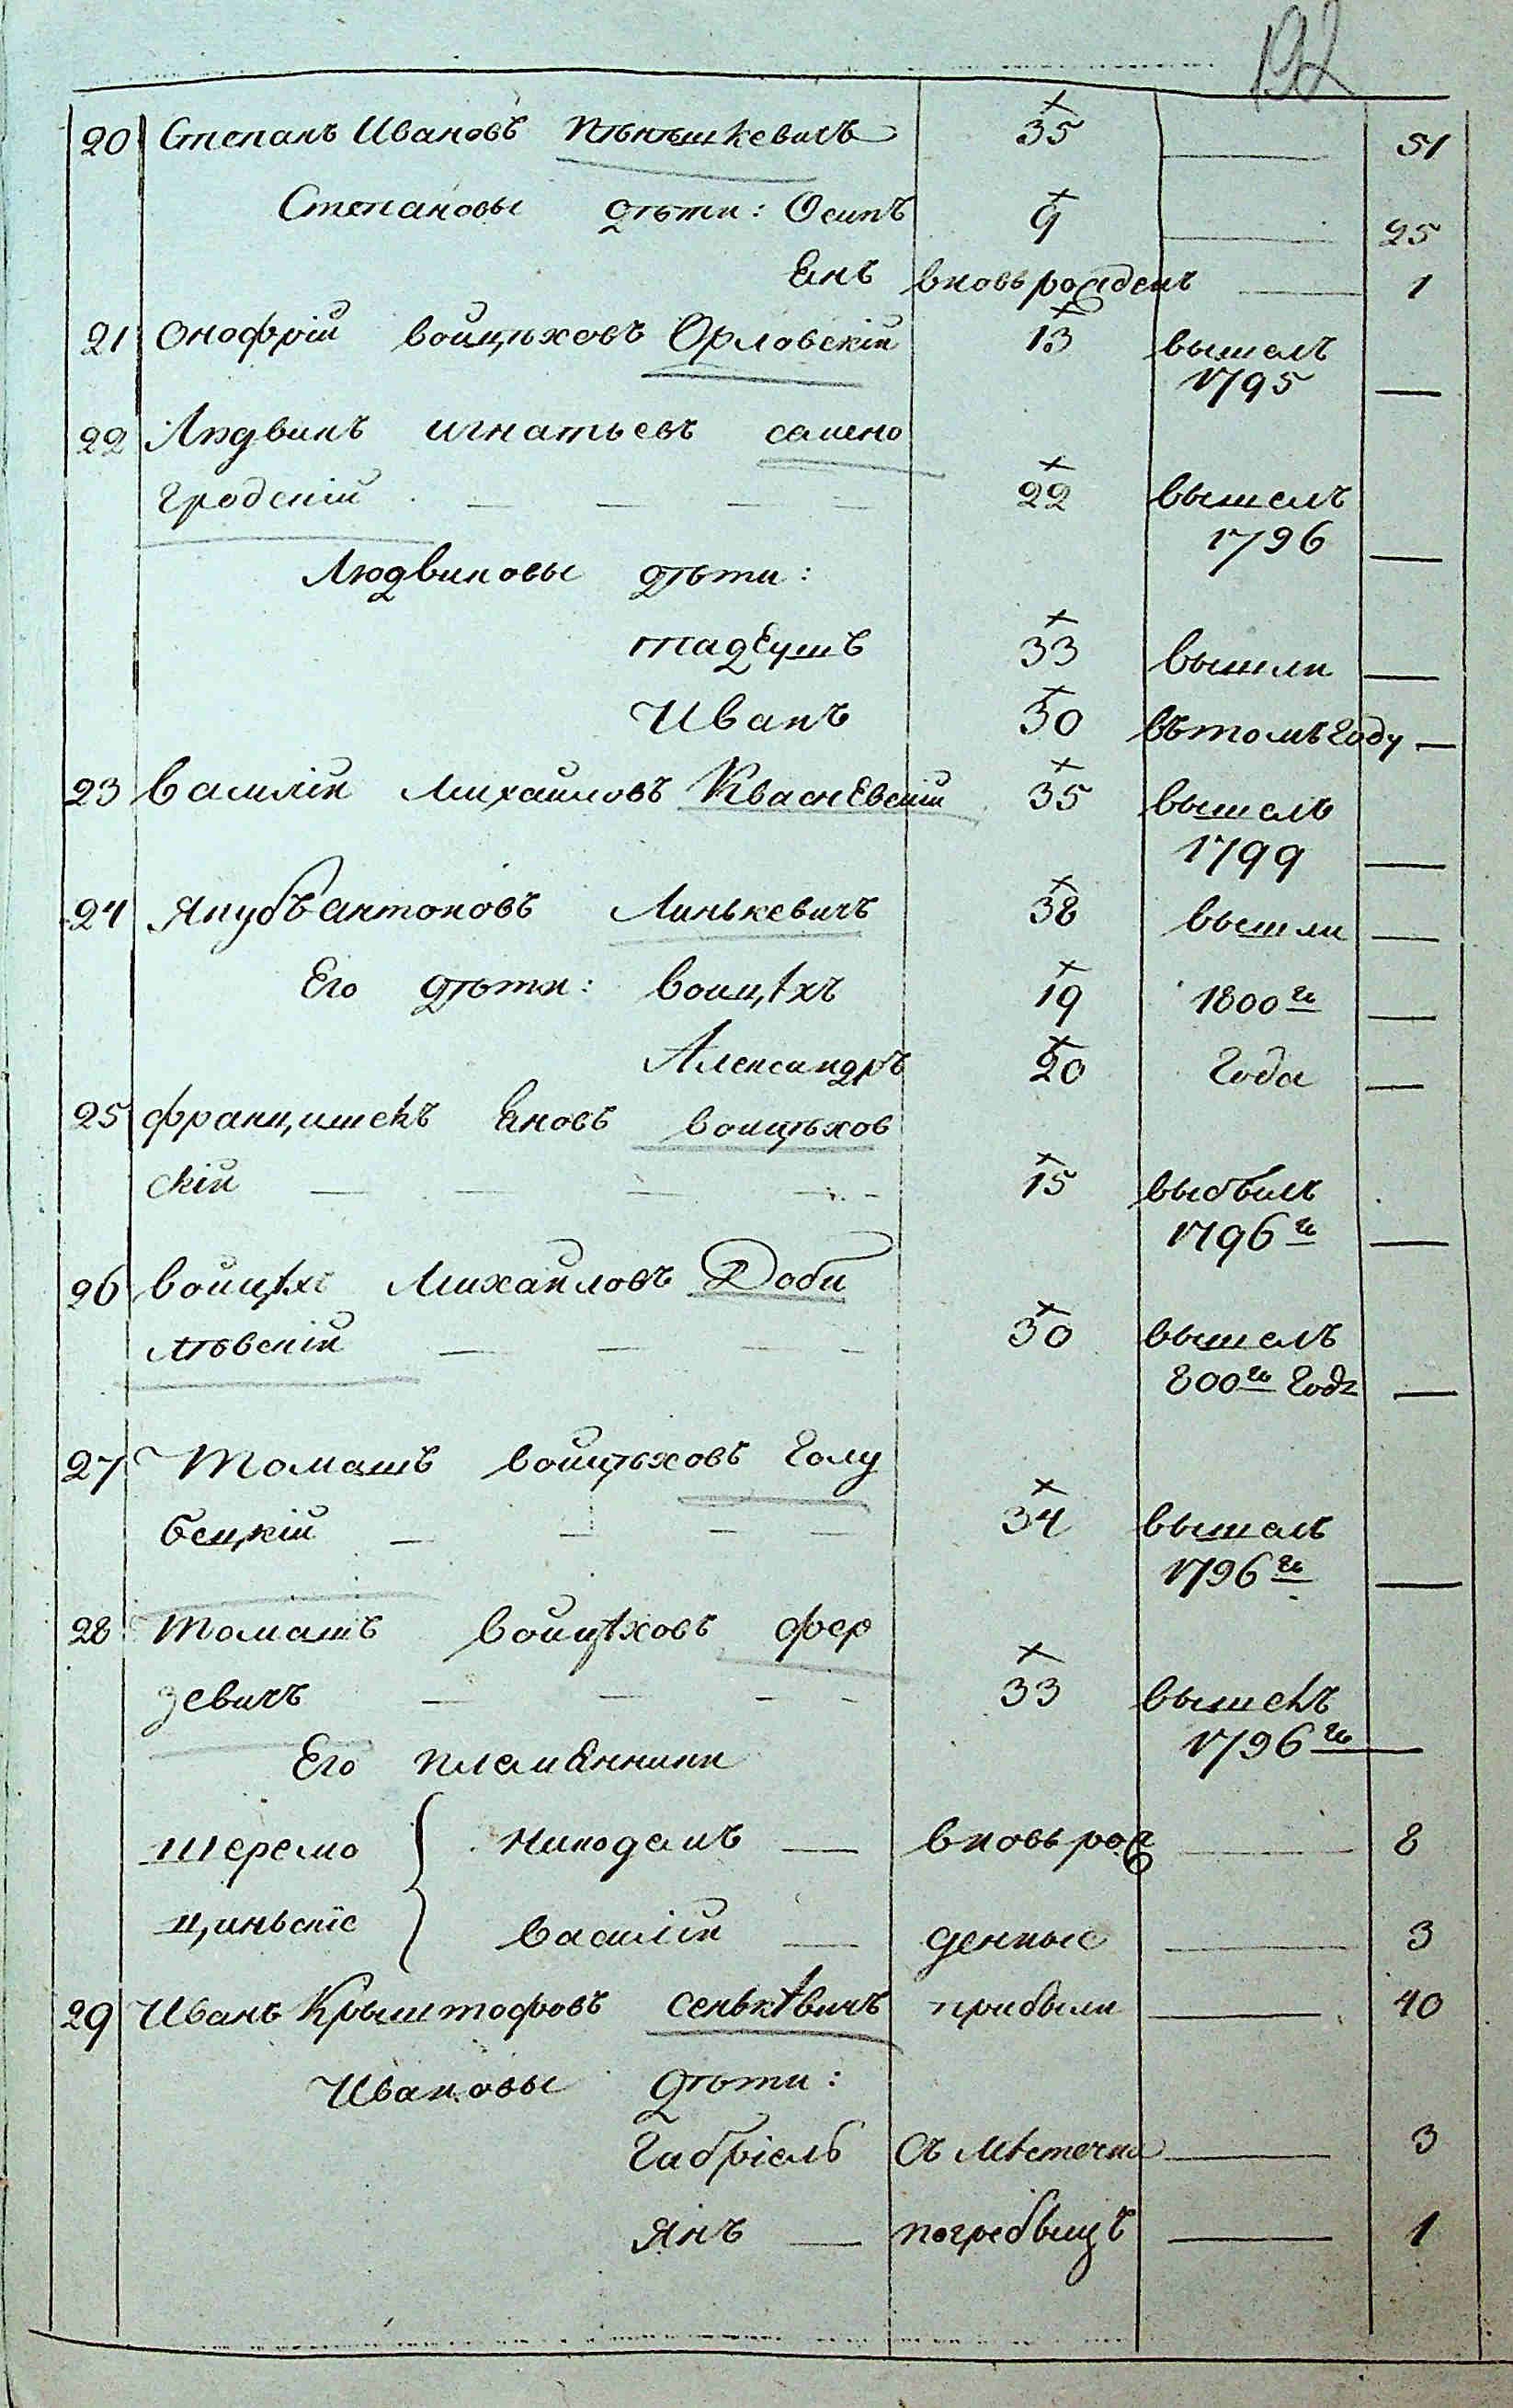 192
20 Степанъ Ивановъ Пѣнѣшкевичъ 35 51
Степановы дѣти: Осипъ 9 25
Янъ вновь рожденъ 1
21 Онофрій Войцѣховъ Орловскій 13 вышелъ
1795
22 Людвикъ Игнатьевъ Самено
гродскій 22 вышелъ
1796
Людвиковы дѣти:
Тадеушъ 33 вышли
Иванъ 30 въ томъ году
23 Василій Михайловъ Квасневскій 35 вышелъ
1799
24 Якубъ Антоновъ Линькевичъ 38 вышли
Его дѣти: Войцѣхъ 19 1800го
Александръ 20 года
25 Францишекъ Яновъ Войцѣхов
скій 15 выбылъ
1796го
26 Войцѣхъ Михайловъ Доби
лѣвскій 30 вышелъ
800го года
27 Томашъ Войцѣховъ Голу
бецкій 34 вышелъ
1796го
28 Томашъ Войцѣховъ Фер
зевичъ 33 вышелъ
1796го
Его племянники
Шеремо Никодемъ вновь рож 8
циньскіе Василій денные 3
29 Иванъ Крыштофовъ Сенькевичъ прибыли 40
Ивановы дѣти:
Габріель съ мѣстечка 3
Янъ погребыщъ 1